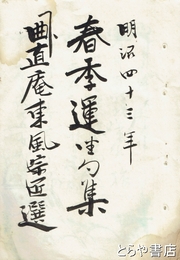 明治四十三年
春季運座句集
曲直庵東風宗匠選
とらや書店